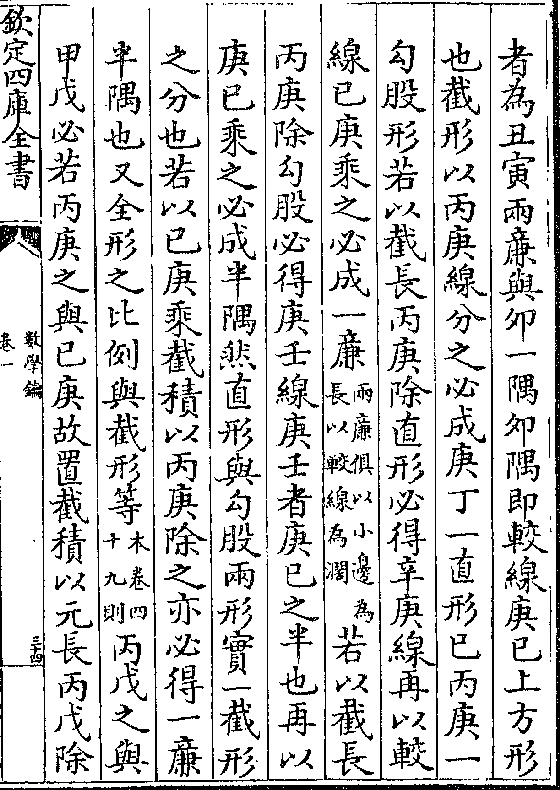 者為丑寅兩亷與卯一隅卯隅即較線庚已上方形
也截形以丙庚線分之必成庚丁一直形已丙庚一
勾股形若以截長丙庚除直形必得辛庚線再以較
線已庚乘之必成一亷兩亷俱以小邊為長以較線為濶若以截長
丙庚除勾股必得庚壬線庚壬者庚已之半也再以
庚已乘之必成半隅然直形與勾股兩形實一截形
之分也若以已庚乘截積以丙庚除之亦必得一亷
半隅也又全形之比例與截形等本卷四十九則丙戊之與
甲戊必若丙庚之與已庚故置截積以元長丙戊除
欽定四庫全書
數學鑰
卷一
三十四